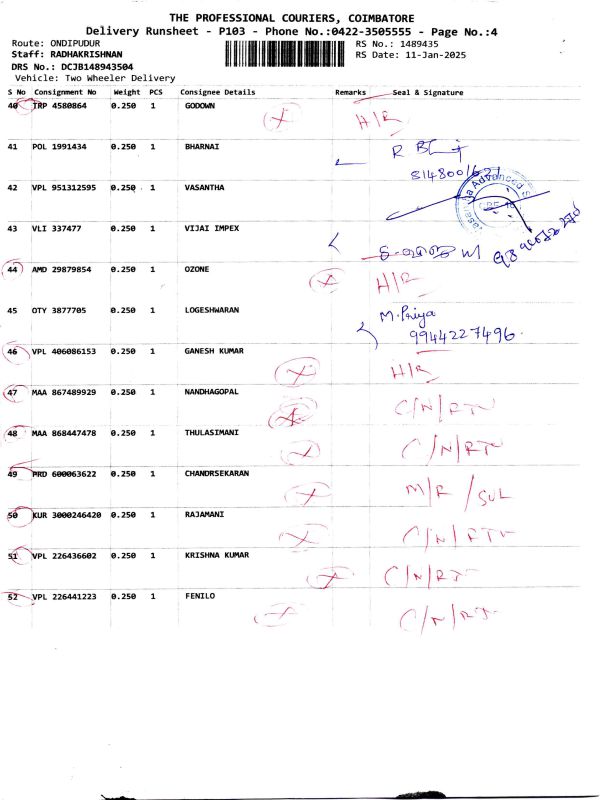 THE PROFESSIONAL COURIERS, COIMBATORE
Delivery Runsheet - P103 - Phone No.:0422-3505555 - Page No.:4
Route: ONDIPUDUR
RS No.: 1489435
Staff: RADHAKRISHNAN
RS Date: 11-Jan-2025
DRS No.: DCJB148943504
Vehicle: Two Wheeler Delivery
S No Consignment No Weight PCS Consignee Details Remarks Seal & Signature
40 TRP 4580864 0.250 1 GODOWN
H/R
41 POL 1991434 0.250 1 BHARNAI
42 VPL 951312595 0.250 1 VASANTHA
43 VLI 337477 0.250 1 VIJAI IMPEX
44 AMD 29879854 0.250 1 OZONE
H/R
45 OTY 3877705 0.250 1 LOGESHWARAN
M. Priya
9944227496.
46 VPL 406086153 0.250 1 GANESH KUMAR
H/R
47 MAA 867489929 0.250 1 NANDHAGOPAL
C/N/RTN
48 MAA 868447478 0.250 1 THULASIMANI
C/N/RTN
49 PRD 600063622 0.250 1 CHANDRSEKARAN
M/R /SUL
50 KUR 3000246420 0.250 1 RAJAMANI
C/N/RTN
51 VPL 226436602 0.250 1 KRISHNA KUMAR
C/N/RTN
52 VPL 226441223 0.250 1 FENILO
C/N/RTN